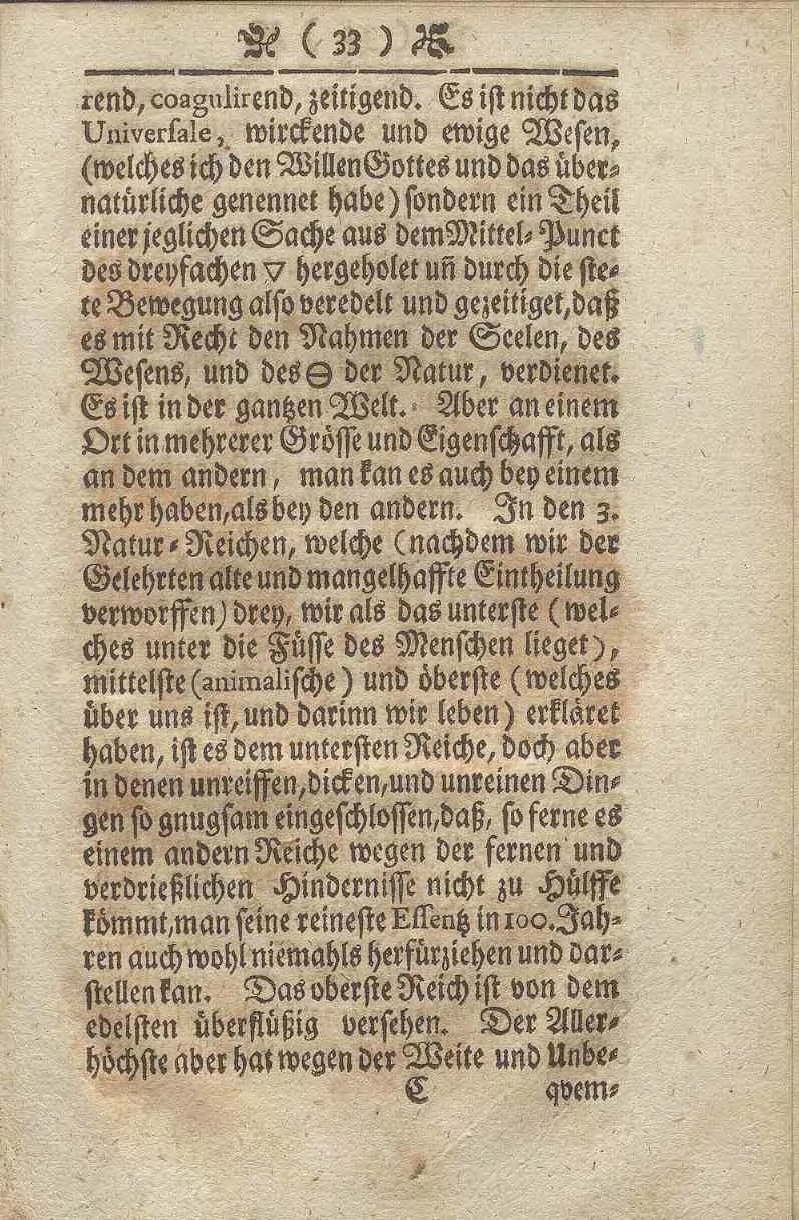 ( 33 )
rend, coagulirend, zeitigend. Es ist nicht das
Universale, wirckende und ewige Wesen,
(welches ich den Willen Gottes und das über⸗
natürliche genennet habe) sondern ein Theil
einer jeglichen Sache aus dem Mittel⸗Punct
des dreyfachen 🜄 hergeholet uñ durch die ste⸗
te Bewegung also veredelt und gezeitiget, daß
es mit Recht den Nahmen der Seelen, des
Wesens, und des 🜔 der Natur, verdienet.
Es ist in der gantzen Welt. Aber an einem
Ort in mehrerer Grösse und Eigenschafft, als
an dem andern, man kan es auch bey einem
mehr haben, als bey den andern. In den 3.
Natur⸗Reichen, welche (nachdem wir der
Gelehrten alte und mangelhaffte Eintheilung
verworffen) drey, wir als das unterste (wel⸗
ches unter die Füsse des Menschen lieget),
mittelste (animalische) und öberste (welches
über uns ist, und darinn wir leben) erkläret
haben, ist es dem untersten Reiche, doch aber
in denen unreiffen, dicken, und unreinen Din⸗
gen so gnugsam eingeschlossen, daß, so ferne es
einem andern Reiche wegen der fernen und
verdrießlichen Hindernisse nicht zu Hülffe
kömmt, man seine reineste Essentz in 100. Jah⸗
ren auch wohl niemahls herfürziehen und dar⸗
stellen kan. Das oberste Reich ist von dem
edelsten überflüßig versehen. Der Aller⸗
höchste aber hat wegen der Weite und Unbe⸗
C qvem⸗